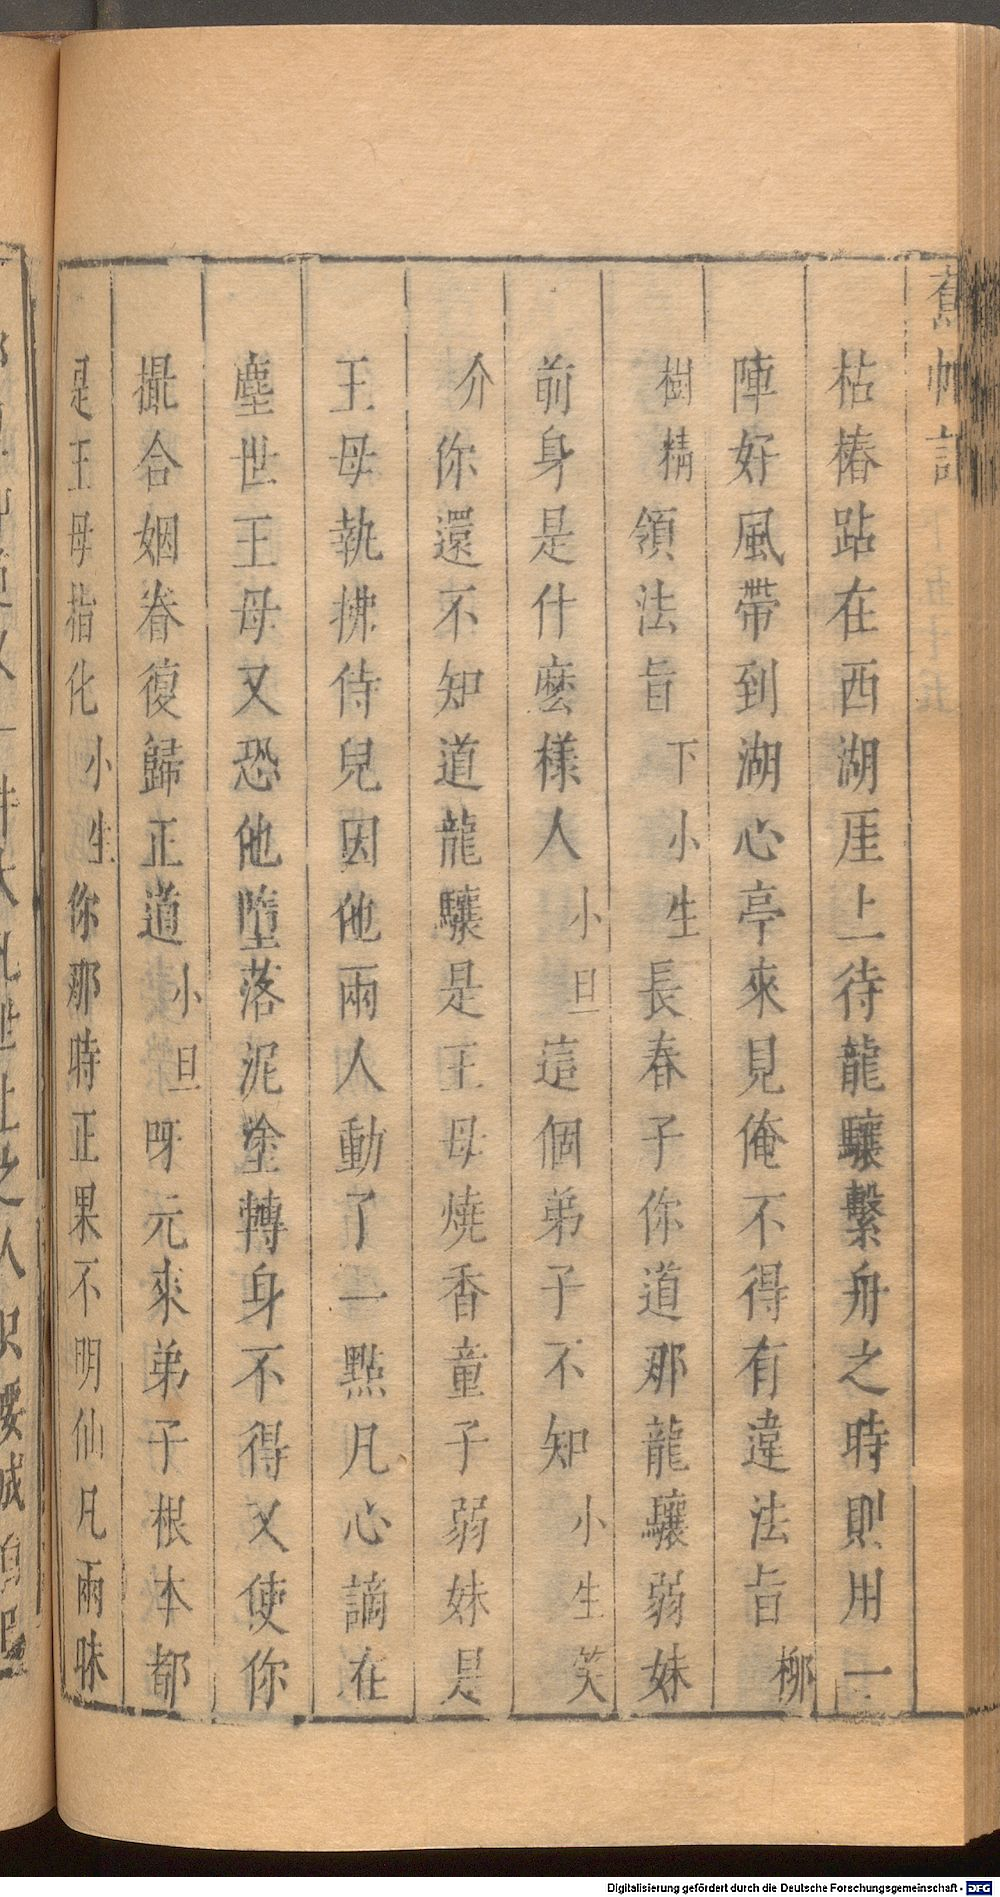 枯椿跕在西湖厓上待龍驤繫舟之時則用一
陣好風帶到湖心亭來見俺不得有違法旨柳
樹精領法旨下小生長春子你道那龍驤弱妹
前身是什麼樣人小旦這個弟子不知小生笑
介你還不知道龍驤是王母燒香童子弱妹是
王母執拂侍兒因他兩人動了一點凡心謫在
塵世王母又恐他墮落泥塗轉身不得又使你
撮合姻眷復歸正道小旦呀元來弟子根本都
是王母指化小生你那時正果不明仙凡兩昧
Digitalisierung gefördert durch die Deutsche Forschungsgemeinschaft - DFG